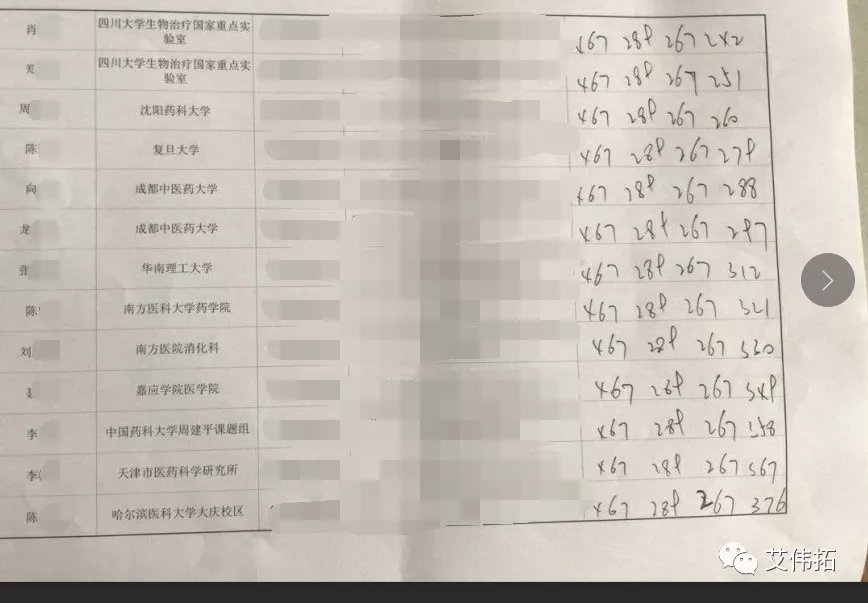 肖 四川大学生物治疗国家重点实 467 289 267 242
验室
四川大学生物治疗国家重点实 467 289 267 251
验室
周 沈阳药科大学 467 289 267 260
陈 复旦大学 467 289 267 279
向 成都中医药大学 467 289 267 288
龙 成都中医药大学 467 289 267 297
张 华南理工大学 467 289 267 312
陈 南方医科大学药学院 467 289 267 321
刘 南方医院消化科 467 289 267 330
嘉应学院医学院 467 289 267 349
李 中国药科大学周建平课题组 467 289 267 358
李 天津市医药科学研究所 467 289 267 367
陈 哈尔滨医科大学大庆校区 467 289 267 376
艾伟拓